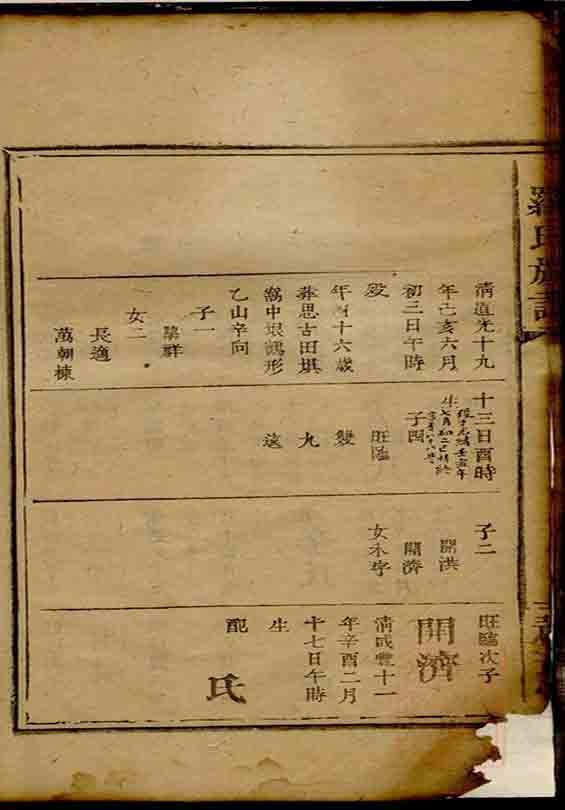 羅氏族譜
清道光十九
年己亥六月
初三日午時
歿
年四十六歲
葬思古田堪
窩中垠鵝形
乙山辛向
子一
榮祥
女二
長適
萬朝棟
十三日酉時
生
子四
旺臨
雙
九
遠
子二
開洪
開濟
女未字
旺臨次子
開濟
清咸豐十一
年辛酉二月
十七日午時
生
配
氏